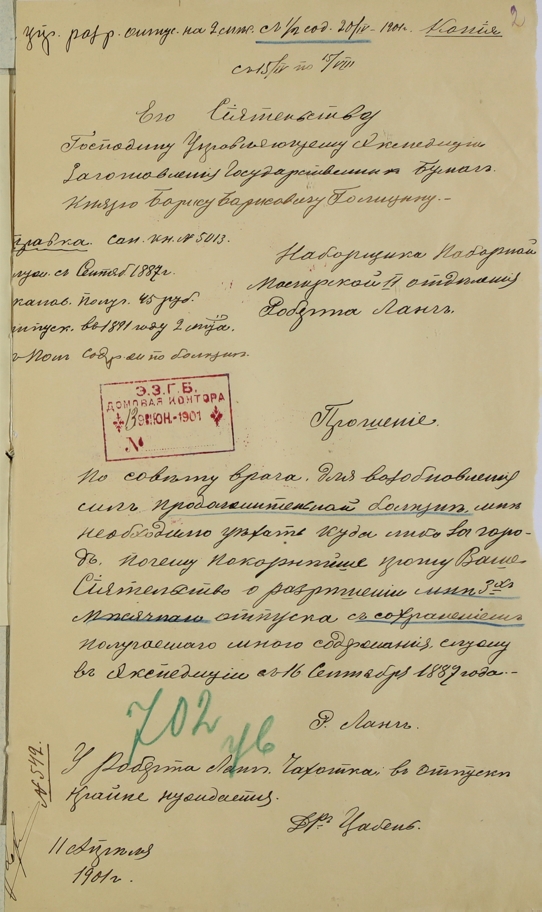 2
разр. отпус. на 2 мѣс. съ 1/2 сод. 20/IV 1901 г. Копія
съ 15/IV по 15/VIII
Его Сіятельству
Господину Управляющему Экспедиціи
Заготовленія Государственныхъ Бумагъ
Князю Борису Борисовичу Голицыну.
Справка. сан. кн. № 5013.
служ. съ Сентяб 1887 г.
жалов. получ. 45 руб.
отпуск. въ 1891 году 2 мѣс.
съ Пол. Содер. по болѣзни.
Наборщика Наборной
Мастерской II отдѣленія
Роберта Лангъ.
Э.З.Г.Б.
ДОМОВАЯ КОНТОРА
ІЮН.-1901
№
Прошеніе.
По совѣту врача, для возобновленія
силъ продолжительной болѣзни, мнѣ
необходимо уѣхать куда либо за горо-
дъ, почему покорнѣйше прошу Ваше
Сіятельство о разрѣшеніи мнѣ 3хъ
мѣсячнаго отпуска съ сохраненіемъ
получаемаго мною содержанія, служу
въ Экспедиціи съ 16 Сентября 1887 года.
Р. Лангъ.
702
У Роберта Лангъ Чахотка; въ отпускѣ
крайне нуждается.
Д-ръ Цабель.
11 Апрѣля
1901 г.
№ 549.